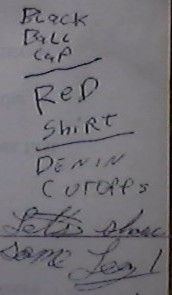 Black
Ball
Cap
Red
Shirt
Denin
Cutoffs
Let's show
some Leg!